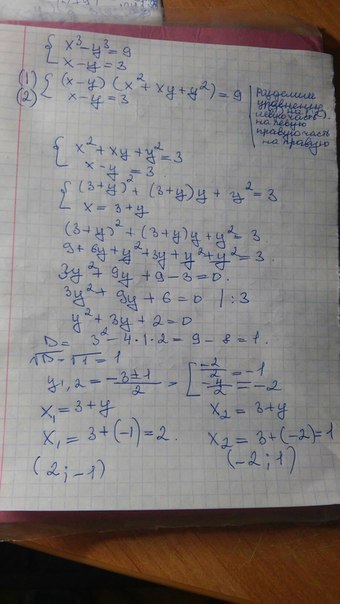 { x³-y³=9
{ x-y=3
(1) { (x-y)(x²+xy+y²)=9
(2) { x-y=3
разделим
уравнение
левую часть
на левую
правую часть
на правую
{ x²+xy+y²=3
{ x-y=3.
{ (3+y)²+(3+y)y+y²=3
{ x=3+y
(3+y)²+(3+y)y+y²=3
9+6y+y²+3y+y²+y²=3.
3y²+9y+9-3=0.
3y²+9y+6=0 |:3
y²+3y+2=0
D=3²-4·1·2=9-8=1.
√D=√1=1
y1,2=(-3±1)/2=[ -2/2=-1
-4/2=-2
x₁=3+y
x₂=3+y
x₁=3+(-1)=2.
x₂=3+(-2)=1
(2;-1)
(-2;1)